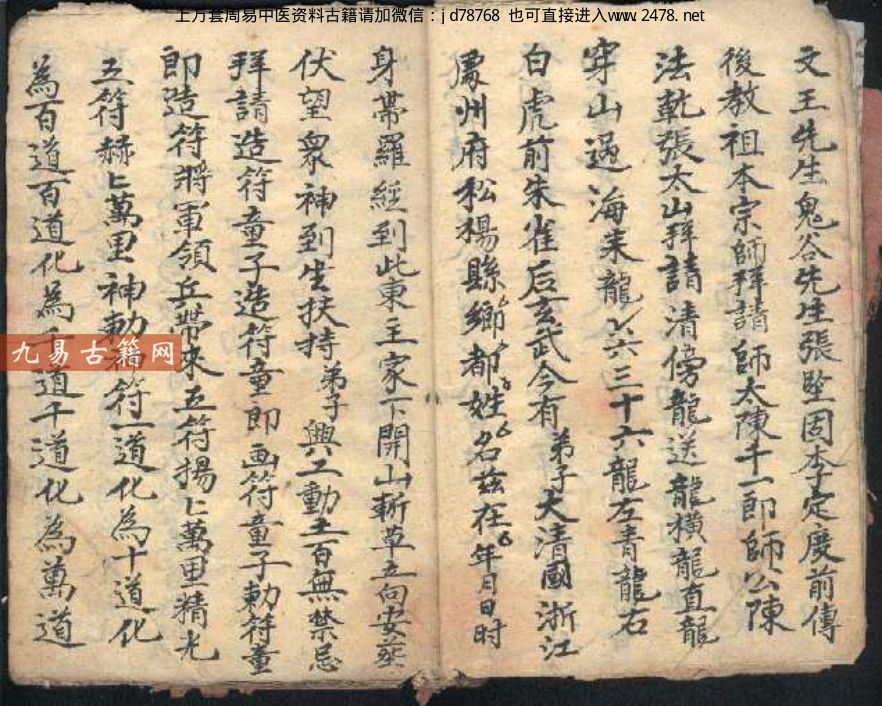 上万套周易中医资料古籍请加微信：jd78768 也可直接进入www.2478.net
文王先生鬼谷先生張堅固李定度前傳
後教祖本宗師拜請師太陳千一郎師公陳
法乾張太山拜請清傍龍送龍橫龍直龍
穿山過海来龍六三十六龍左青龍右
白虎前朱雀后玄武今有弟子大清國浙江
處州府松楊縣鄉都姓名兹在年月日时
身帶羅經到此東主家下開山斬草立向安
伏望衆神到生扶持弟子興工動土百無禁忌
拜請造符童子造符童即画符童子勅符童
即造符將軍領兵帶来五符揚上萬里精光
五符赫上萬里神勅符一道化為十道化
為百道百道化為千道千道化為萬道
九易古籍网